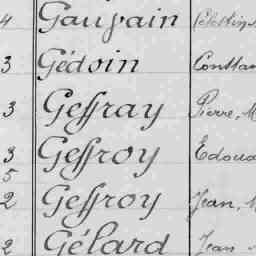 4 Gauvain Célestin
3 Gédoin Constan
3 Geffray Pierre, M
3 Geffroy Edoua
5
2 Geffroy Jean, M
2 Gélard Jean